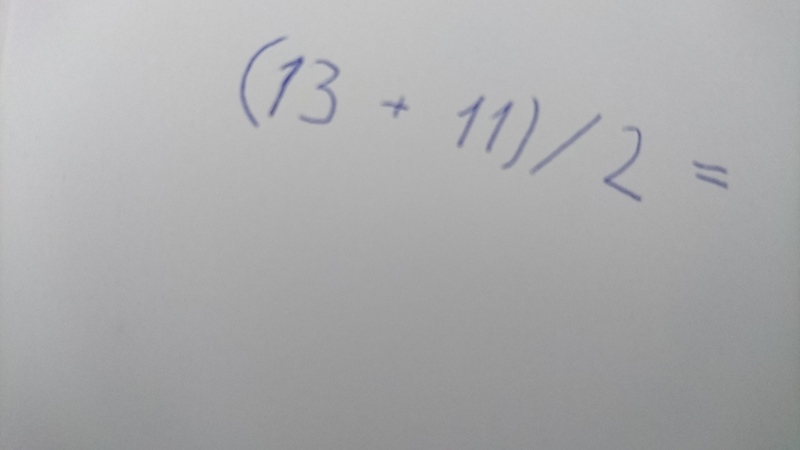 (13 + 11)/2 =